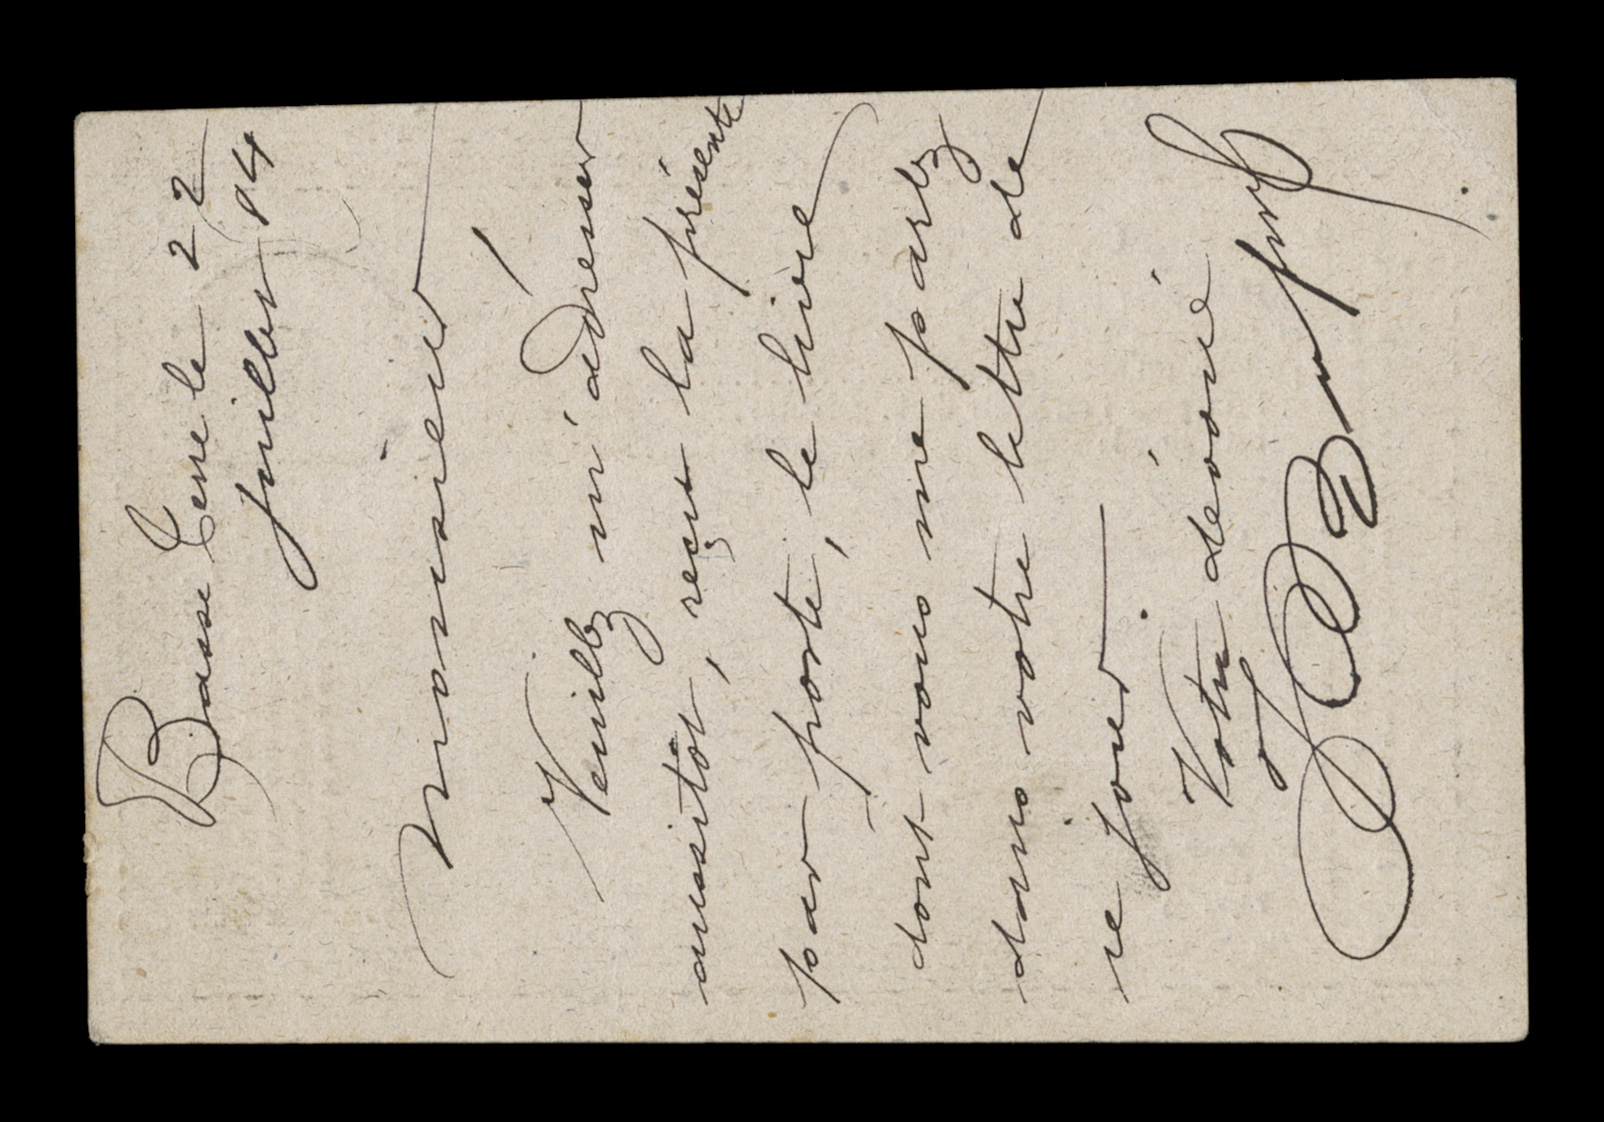 Basse Terre le 22
juillet 84
Monsieur
Veuillez m'adresser
aussitôt, reçu la présente
par poste, le livre
dont vous me parlez
dans votre lettre de
ce jour.
Votre dévoué